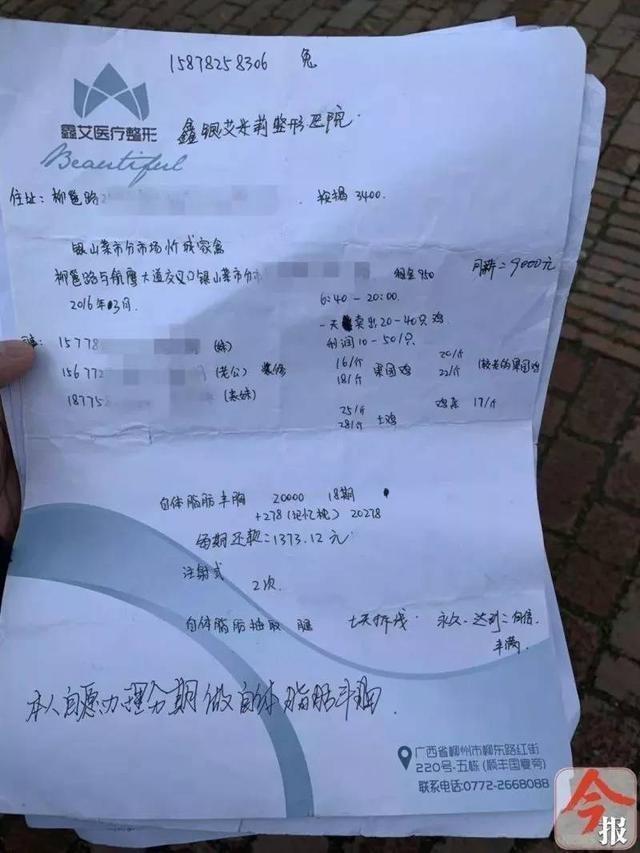 15878258306 兔
鑫艾医疗整形
Beautiful
鑫银艾米莉整形医院
住址: 柳邕路2
按揭 3400
银山菜市分市场忻城家禽
柳邕路与航鹰大道交叉口银山菜市分市
租金 950
月薪=9000元
2016年03月
6:40-20:00
一天卖出20-40只鸡
利润10-50/只
15778 (妹)
156772 (老公) 装修
18775 (表妹)
16/斤
18/斤
果园鸡
20/斤
22/斤
(较老的果园鸡
25/斤
28/斤
土鸡
17/斤
自体脂肪丰胸 20000 18期
+278 (记忆枕) 20278
每期还款=1373.12元
注射式
2次
自体脂肪抽取 腿 七天拆线 永久. 达到=自信
丰满
本人自愿办理分期做自体脂肪丰胸.
广西省柳州市柳东路红街
220号-五栋 (顺丰国宴旁)
联系电话:0772-2668088
今报